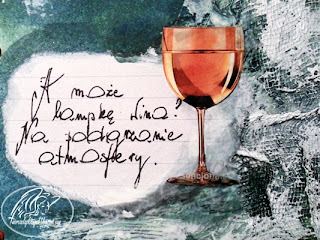 A może
lampkę wina?
Na podgrzanie
atmosfery.